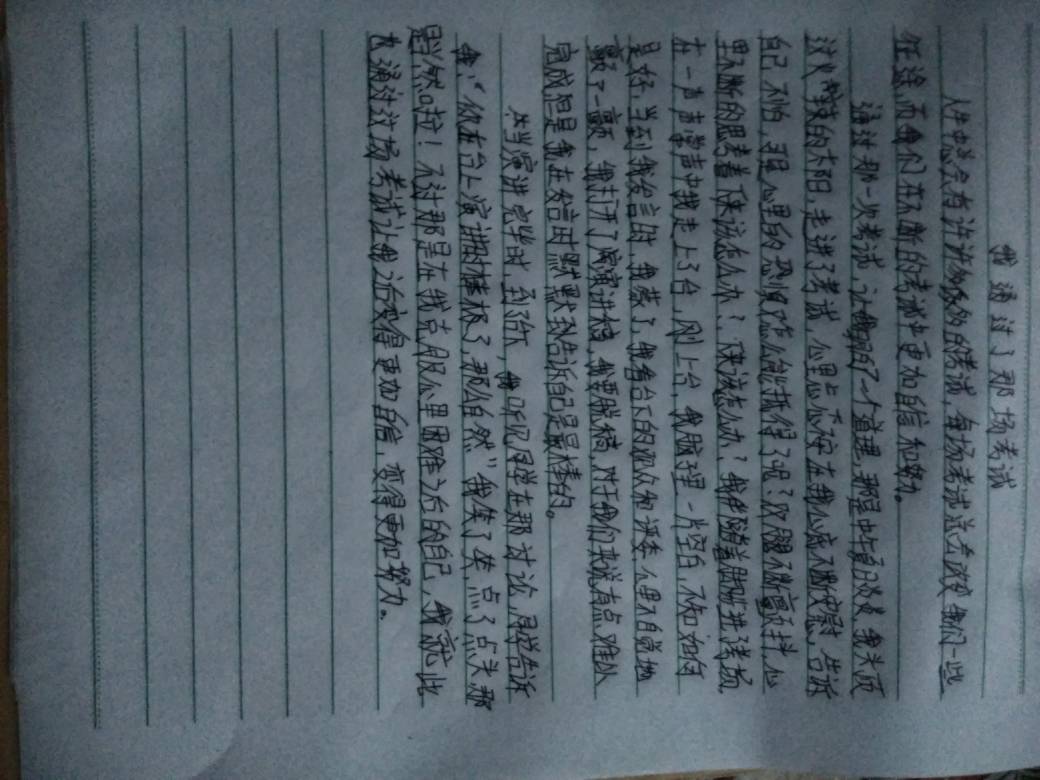 我通过了那场考试
人生中总会有许许多多的考试,每场考试总会改变我们一些
任途,而我们在不断的考试中更加自信和努力。
通过那一次考试,让我明了一个道理,那是中旬日炎炎,我头顶
火辣的太阳,走进了考试,心里忐忑不安在我心底不断安慰,告诉
自己不怕,可是心里的恐惧怎么能抵得了呢?双腿不断颤抖,心
里不断的思考着,该怎么办?,该怎么办?我伴随着脚步进了考场
在一声声掌声中我走上了台,刚上台,我脑子里一片空白,不知如何
是好,当到我发言时,我慌了,我看台下的观众和评委,心里不自觉地
颤了一颤,我打开了演讲稿,我要脱稿,对于我们来说有点难以
完成但是我在发言时默默告诉自己是最棒的。
当演讲完毕时,到了台下,我听见同学在那讨论,同学告诉
我:“你在台上演讲的棒极了,那么自然”我笑了笑,点了点头那
是当然啦!不过那是在我克服心里困难之后的自己,我就此
也通过这场考试让我以后变得更加自信,变得更加努力。